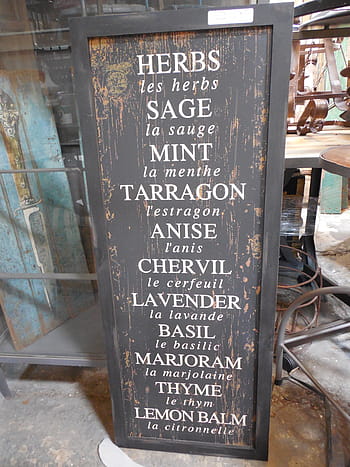 HERBS
les herbs
SAGE
la sauge
MINT
la menthe
TARRAGON
l'estragon
ANISE
l'anis
CHERVIL
le cerfeuil
LAVENDER
la lavande
BASIL
le basilic
MARJORAM
la marjolaine
THYME
le thym
LEMON BALM
la citronnelle